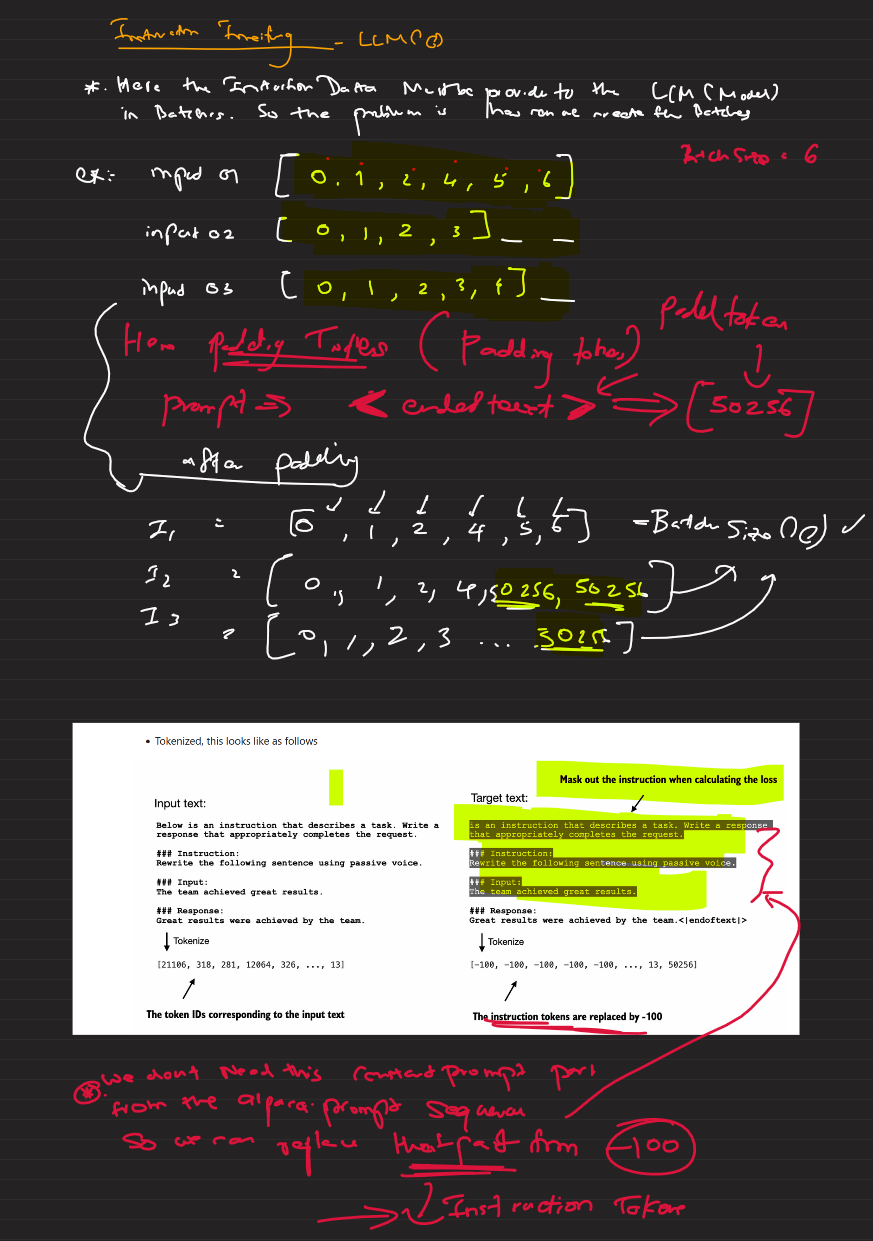 - LLM
*. Here the Data Must be provide to the LLM (Model)
in Batches. So the problem is how can we create the Batches
Batch size = 6
ex:- input 01 [0, 1, 2, 4, 5, 6]
input 02 [0, 1, 2, 3] _ _
input 03 [0, 1, 2, 3, 4] _
padding (Padding token)
Padd token
prompt ⇒ < endedtext > ⇒ [50256]
after padding
I1 = [0, 1, 2, 4, 5, 6] = Batch Size ✓
I2 = [0, 1, 2, 4, 50256, 50256]
I3 = [0, 1, 2, 3 ... 5025]
• Tokenized, this looks like as follows
Mask out the instruction when calculating the loss
Input text:
Below is an instruction that describes a task. Write a
response that appropriately completes the request.
### Instruction:
Rewrite the following sentence using passive voice.
### Input:
The team achieved great results.
### Response:
Great results were achieved by the team.
Tokenize
[21106, 318, 281, 12064, 326, ..., 13]
The token IDs corresponding to the input text
Target text:
is an instruction that describes a task. Write a response
that appropriately completes the request.
### Instruction:
Rewrite the following sentence using passive voice.
### Input:
The team achieved great results.
### Response:
Great results were achieved by the team.<|endoftext|>
Tokenize
[-100, -100, -100, -100, -100, ..., 13, 50256]
The instruction tokens are replaced by -100
* we dont need this constant prompt part
from the alpaca prompt
So we can replace that part from -100
Instruction Token